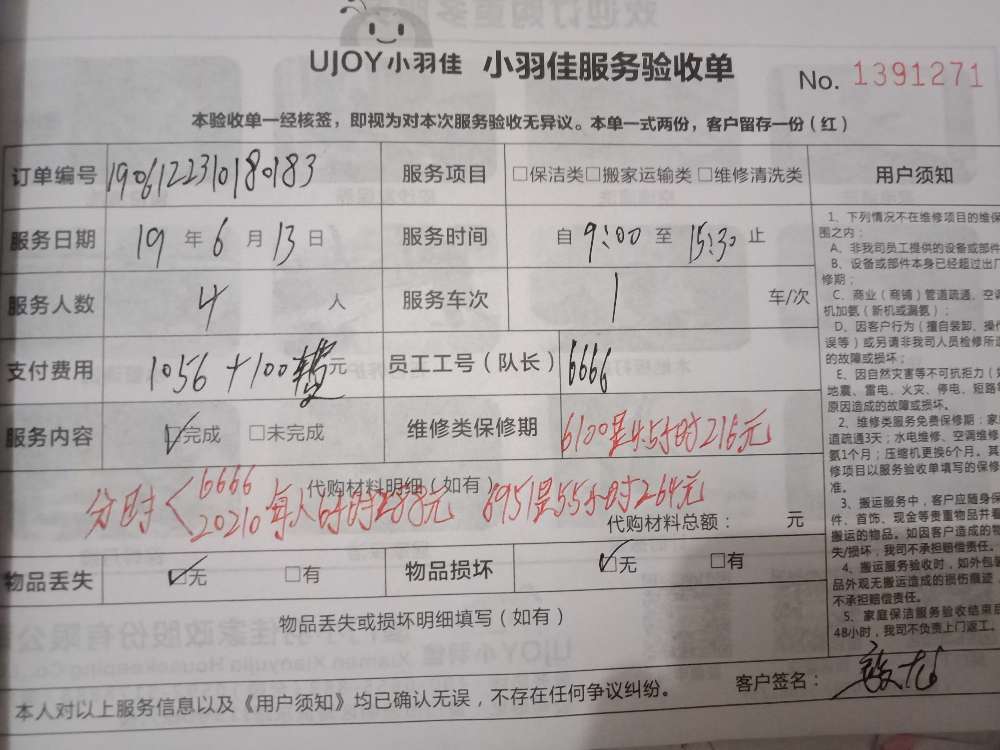 UJOY小羽佳 小羽佳服务验收单
No. 1391271
本验收单一经核签，即视为对本次服务验收无异议。本单一式两份，客户留存一份（红）
订单编号 1906122310180183 服务项目 □保洁类□搬家运输类□维修清洗类
服务日期 19年6月13日 服务时间 自9:00至15:30止
服务人数 4人 服务车次 1 车/次
支付费用 1056+100 元 员工工号（队长） 6666
服务内容 ☑完成 □未完成 维修类保修期 6100是4.5小时216元
代购材料明细（如有）
分时 6666
20210 每人6小时288元 6951是5.5小时264元
代购材料总额： 元
物品丢失 ☑无 □有 物品损坏 ☑无 □有
物品丢失或损坏明细填写（如有）
客户签名：
本人对以上服务信息以及《用户须知》均已确认无误，不存在任何争议纠纷。
用户须知
1、下列情况不在维修项目的维保
围之内：
A、非我司员工提供的设备或部件
B、设备或部件本身已经超过出厂
修期；
C、商业（商铺）管道疏通、空调
机加氨（新机或漏氨）；
D、因客户行为（擅自装卸、操作
误等）或另请非我司人员检修所造
的故障或损坏；
E、因自然灾害等不可抗拒力（如
地震、雷电、火灾、停电、短路
原因造成的故障或损坏。
2、维修类服务免费保修期：家庭
道疏通3天；水电维修、空调维修
氨1个月；压缩机更换6个月。其
修项目以服务验收单填写的保修
准。
3、搬运服务中，客户应随身保
件、首饰、现金等贵重物品并看
搬运的物品。如因客户造成的物
失/损坏，我司不承担赔偿责任。
4、搬运服务验收时，如外包装
品外观无搬运造成的损伤痕迹
不承担赔偿责任。
5、家庭保洁服务验收结束后
48小时，我司不负责上门返工。